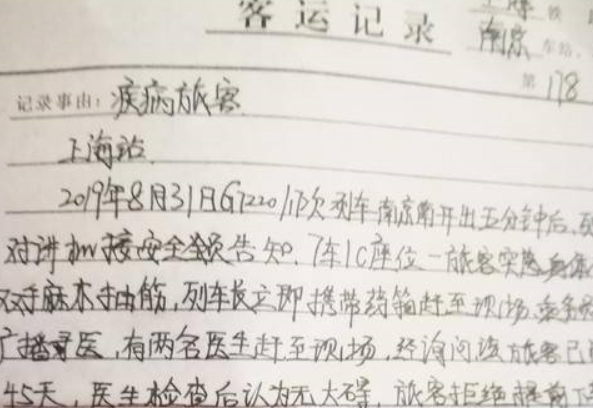 客运记录
南京 车站
第 178
记录事由：疾病旅客
上海站
2019年8月31日G7220/17次列车南京南开出五分钟后，列
对讲机接安全员告知，7车1C座位一旅客突感身体
双手麻木抽筋，列车长立即携带药箱赶至现场，
广播寻医，有两名医生赶至现场，经询问该旅客已
45天，医生检查后认为无大碍，旅客拒绝提前下